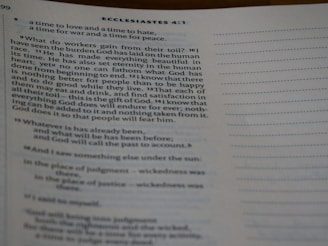 99
ECCLESIASTES 4:1
8 a time to love and a time to hate,
a time for war and a time for peace.
9 What do workers gain from their toil? 10 I
have seen the burden God has laid on the human
race. 11 He has made everything beautiful in
its time. He has also set eternity in the human
heart; yet no one can fathom what God has
done from beginning to end. 12 I know that there
is nothing better for people than to be happy
and to do good while they live. 13 That each of
them may eat and drink, and find satisfaction in
all their toil – this is the gift of God. 14 I know that
everything God does will endure for ever; noth-
ing can be added to it and nothing taken from it.
God does it so that people will fear him.
15 Whatever is has already been,
and what will be has been before;
and God will call the past to account.
16 And I saw something else under the sun:
in the place of judgment – wickedness was
there,
in the place of justice – wickedness was
there.
17 I said to myself,
'God will bring into judgment
both the righteous and the wicked,
for there will be a time for every activity,
a time to judge every deed.'